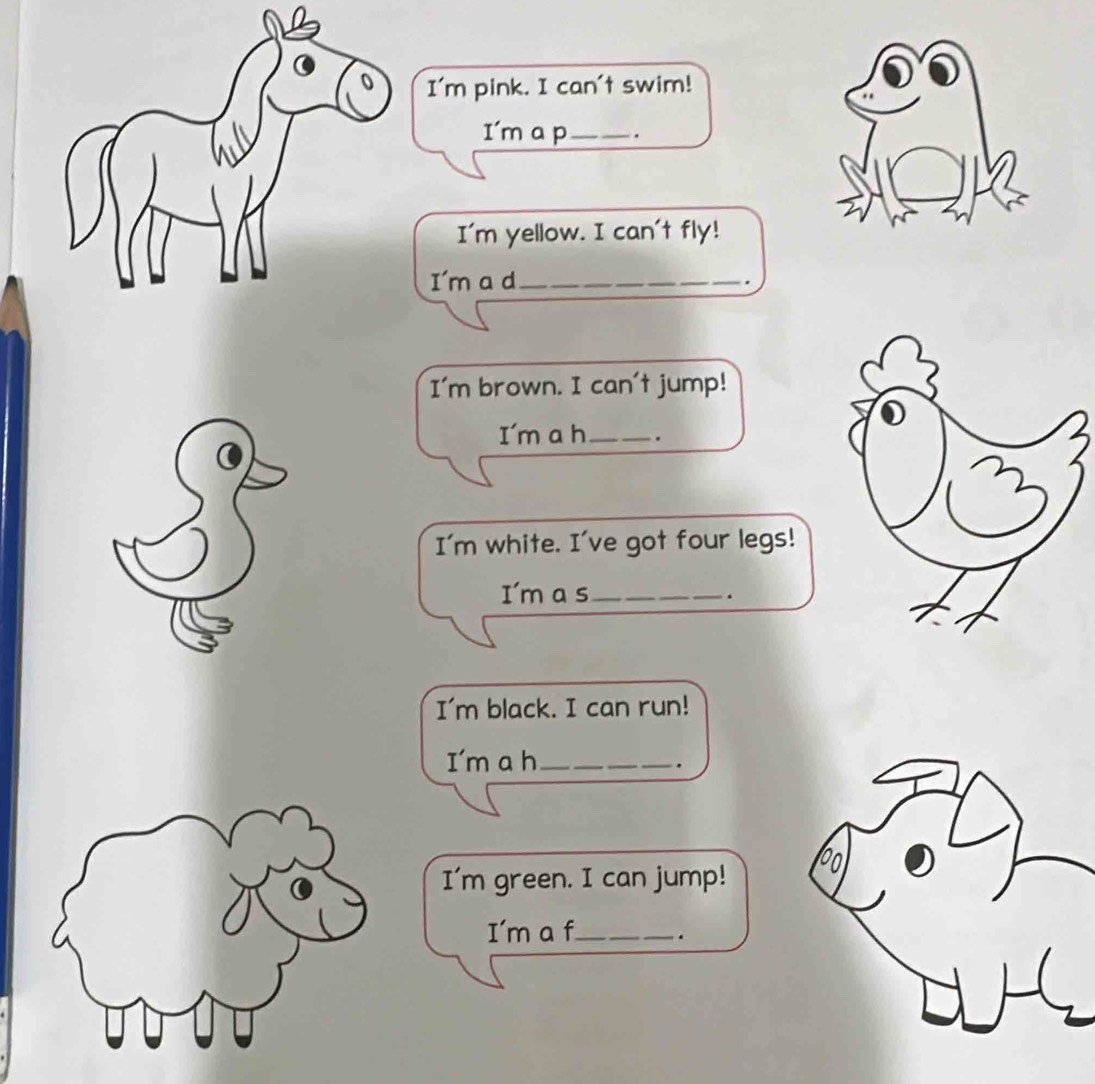 I'm pink. I can't swim!
I'm a p__ __.
I'm yellow. I can't fly!
I'm a d__ __ __ __ __ __ __.
I'm brown. I can't jump!
I'm a h__ __.
I'm white. I've got four legs!
I'm a s__ __ __ __.
I'm black. I can run!
I'm a h__ __ __ __.
I'm green. I can jump!
I'm a f__ __ __.